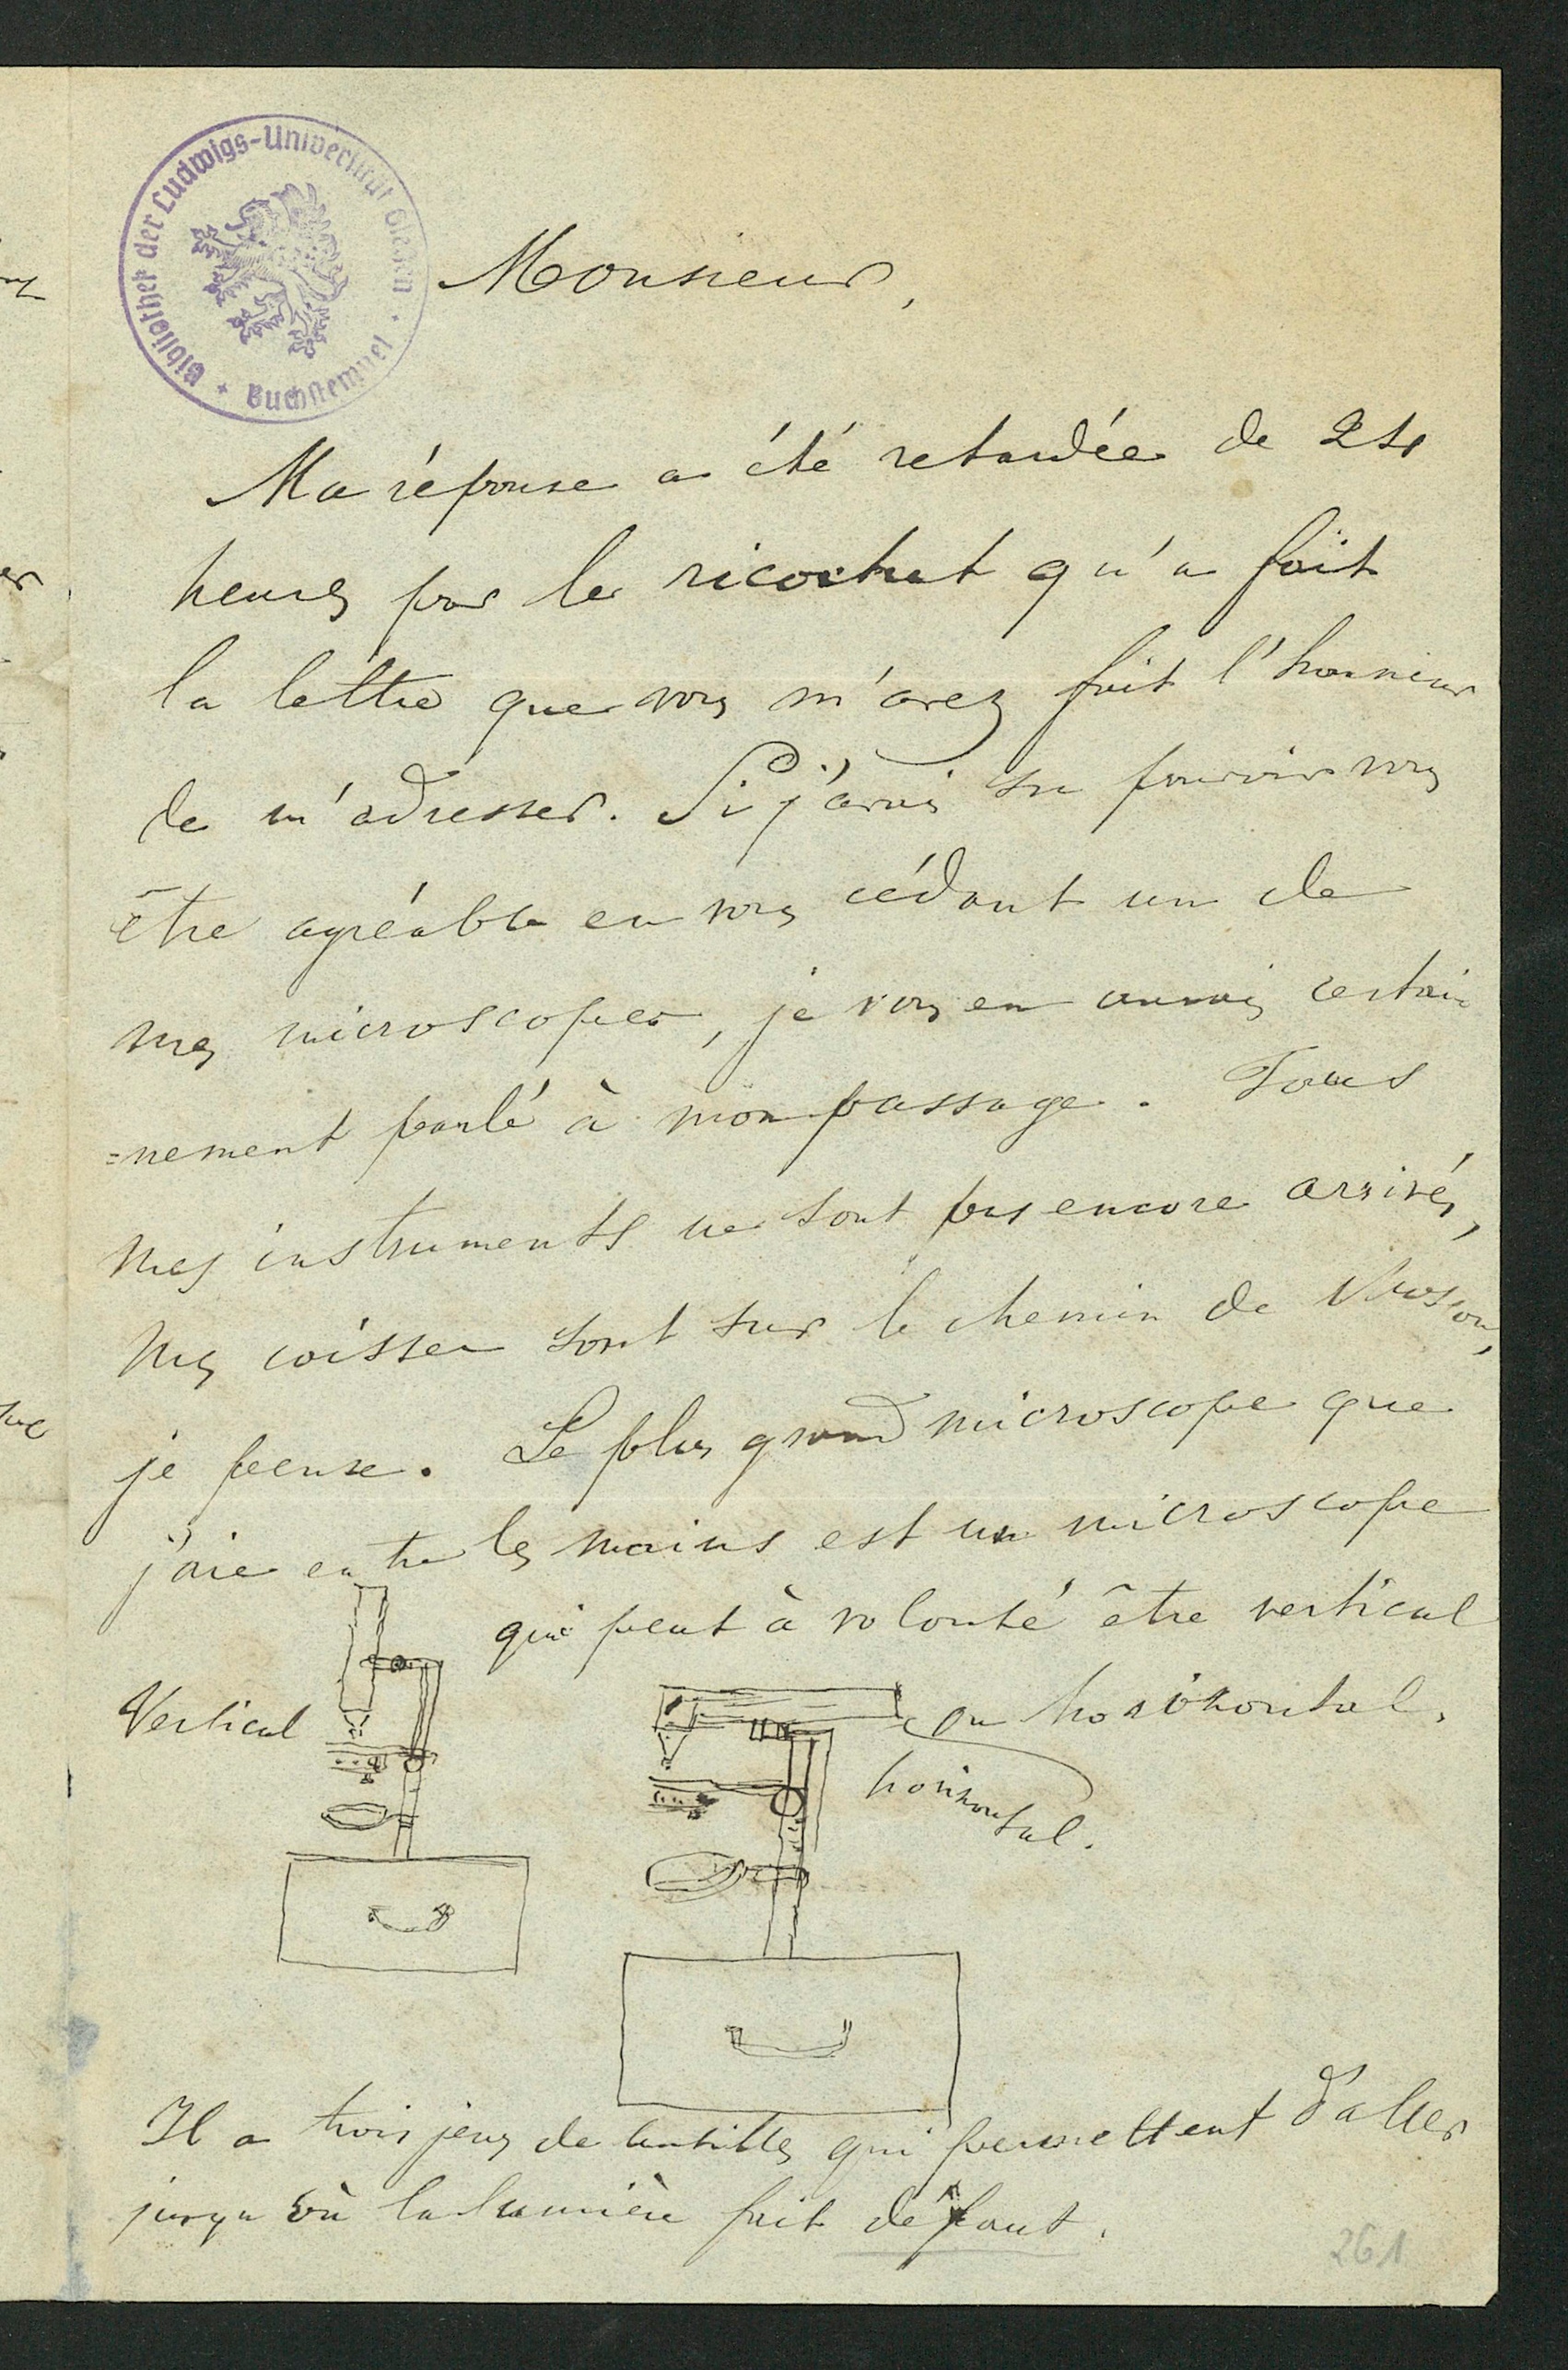 Bibliothek der Ludwigs-Universität Giessen
Buchstempel
Monsieur,
Ma réponse a été retardée de 24
heures par le ricochet qu'a fait
la lettre que vous m'avez fait l'honneur
de m'adresser. Si j'avais su pouvoir vous
être agréable en vous cédant un de
mes microscopes, je vous en aurais certain
=nement parlé à mon passage. Tous
mes instruments ne sont pas encore arrivés,
mes caisses sont sur le chemin de
je pense. Le plus grand microscope que
j'aie entre les mains est un microscope
qui peut à volonté être vertical
Vertical
ou horizontal.
horizontal.
Il a trois jeux de lentilles qui permettent d'aller
jusqu'où la lumière fait défaut.
261